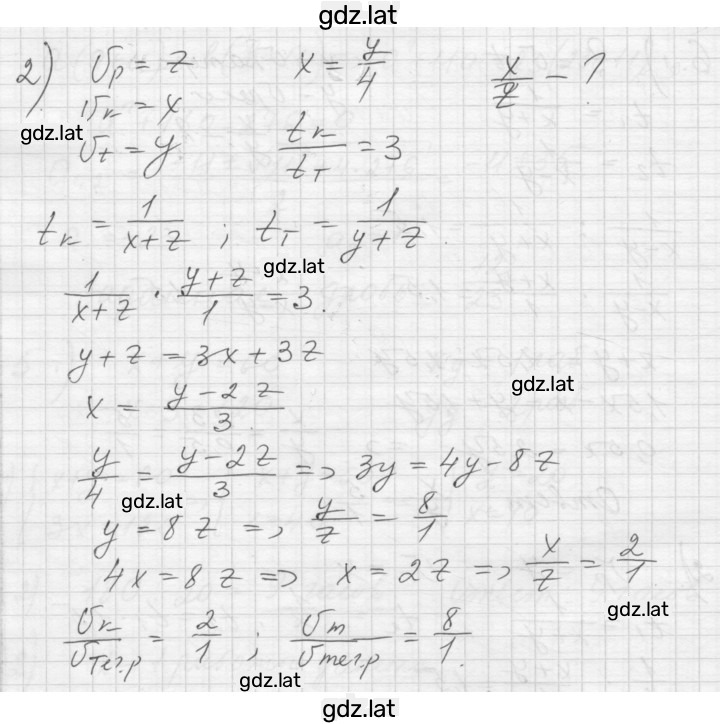 gdz.lat
2) υр = z x = y/4 x/z - ?
υк = x
gdz.lat
υт = y. tк/tт = 3
tк = 1/(x+z) ; tт = 1/(y+z).
gdz.lat
1/(x+z) · (y+z)/1 = 3.
y+z = 3x+3z
gdz.lat
x = (y-2z)/3.
y/4 = (y-2z)/3 => 3y = 4y-8z
gdz.lat
y = 8z => y/z = 8/1
4x = 8z => x = 2z => x/z = 2/1.
gdz.lat
υк/υтеч.р = 2/1 ; υт/υтеч.р = 8/1.
gdz.lat
gdz.lat